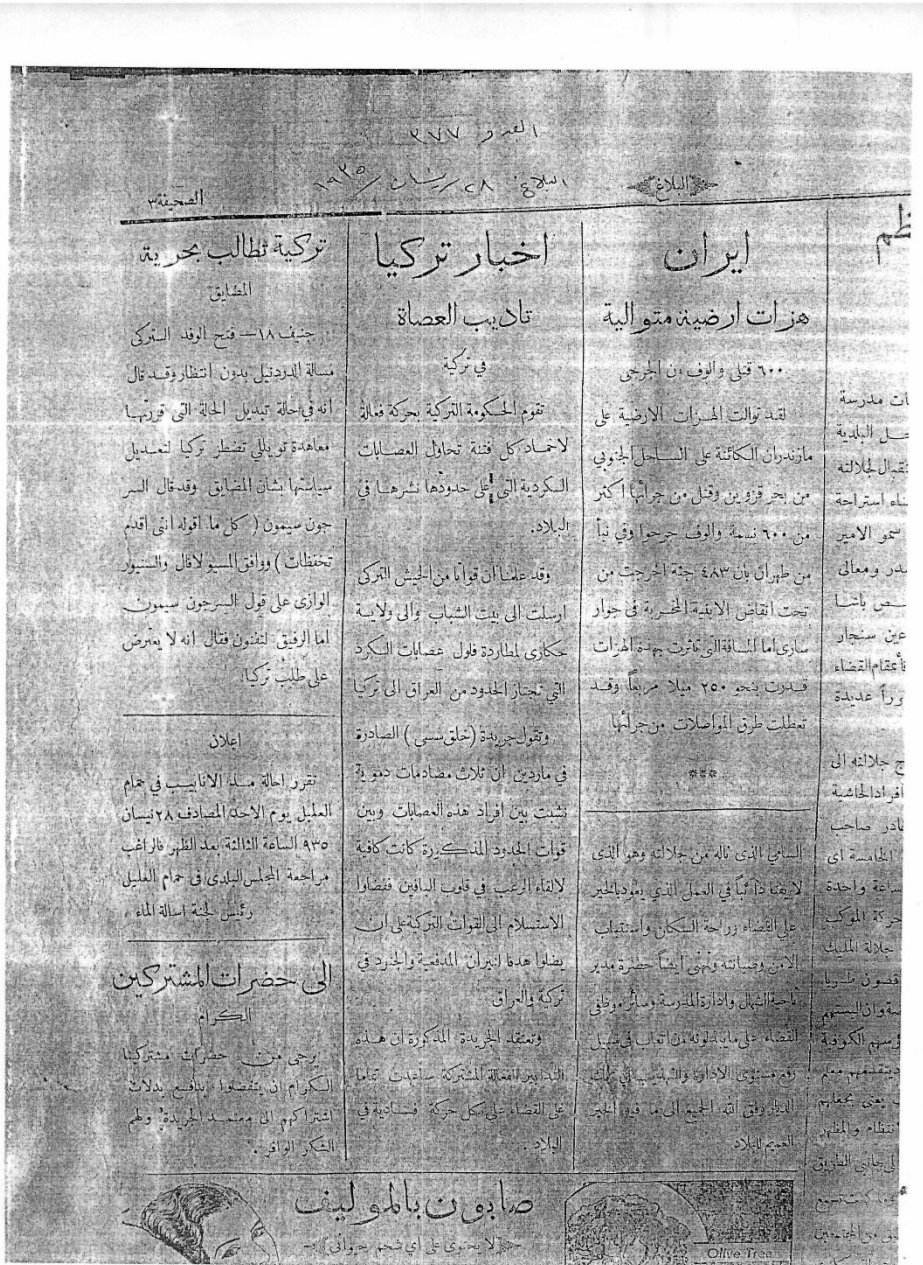 العدد ٣٧٧
البلاغ ٢٨/نيسان/١٩٣٥
البلاغ
الصحيفة ٣
ظم
ات مدرسة
حل البلدية
تقبال لجلالته
ناء استراحة
سمو الامير
در ومعالى
ص باشا
عين سنجار
قأمقام القضاء
وراً عديدة
ج جلالته الى
أفراد الحاشية
ادر صاحب
الخامسة اى
ساعة واحدة
حركة الموكب
جلالة المليك
وسهم الكوفية
تظام والمظهر
لى جانبي الطريق
ايران
هزات ارضية متوالية
٦٠٠ قتلى والوف من الجرحى
لقد توالت الهزات الارضية على
مازندران الكائنة على الساحل الجنوبي
من بحر قزوين وقتل من جرائها اكثر
من ٦٠٠ نسمة والوف جرحوا وفي نبأ
من طهران بان ٤٨٣ جثة اخرجت من
تحت انقاض الابنية المخربة في جوار
سارى اما المسافة التي تاثرت بهذه الهزات
قدرت بنحو ٢٥٠ ميلا مربعاً وقد
تعطلت طرق المواصلات من جرائها
***
السامي الذى ناله من جلالته وهو الذى
لا يفتأ دائباً في العمل الذي يعود بالخير
على القضاء وراحة السكان واستتباب
الامن وصيانته ونهنى ايضاً حضرة مدير
ناحية الشمال وادارة المدرسة وسائر موظفى
القضاء على ما يبذلونه من اتعاب في سبيل
رفع مستوى الادارة والتهذيب في تلك
الديار وفق الله الجميع الى ما فيه الخير
العميم للبلاد
اخبار تركيا
تاديب العصاة
في تركية
تقوم الحكومة التركية بحركة فعالة
لاخماد كل فتنة تحاول العصابات
الكردية التي على حدودها نشرها في
البلاد.
وقد علمنا أن قواتا من الجيش التركى
ارسلت الى بيت الشباب والى ولاية
حكارى لمطاردة فلول عصابات الكرد
التي تجتاز الحدود من العراق الى تركيا
وتقول جريدة (خلق سسى) الصادرة
في ماردين ان ثلاث مصادمات دموية
نشبت بين افراد هذه العصابات وبين
قوات الحدود المذكورة كانت كافية
لالقاء الرعب في قلوب الباقين ففضلوا
الاستسلام الى القوات التركية على ان
يضلوا هدفا لنيران المدفعية والجنود في
تركية والعراق
وتعتقد الجريدة المذكورة ان هذه
التدابير الفعالة المشتركة ساعدت تماما
على القضاء على كل حركة فسادية في
البلاد.
تركية تطالب بحرية
المضايق
جنيف ١٨— فتح الوفد التركى
مسالة الدردنيل بدون انتظار وقد قال
انه في حالة تبديل الحالة التى قررتها
معاهدة نويللي تضطر تركيا لتعديل
سياستها بشان المضايق وقد قال السر
جون سيمون (كل ما اقوله انى اقدم
تحفظات) ووافق المسيو لافال والسنيور
الوازى على قول السر جون سيمون
اما الرفيق لتفنون فقال انه لا يعترض
على طلب تركيا.
اعلان
تقرر احالة مد الانابيب في حمام
العليل يوم الاحد المصادف ٢٨ نيسان
٩٣٥ الساعة الثالثة بعد الظهر فالراغب
مراجعة المجلس البلدى فى حمام العليل
رئيس لجنة اسالة الماء
الى حضرات المشتركين
الكرام
يرجى من حضرات مشتركينا
الكرام ان يتفضلوا بدفع بدلات
اشتراكهم الى معتمد الجريدة ولهم
الشكر الوافر.
صابون بالموليف
لا يحتوى على اي شحم حيواني
Olive Tree